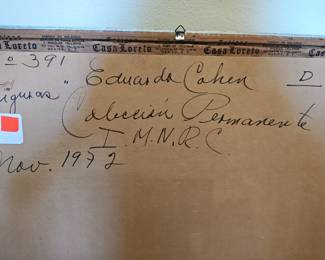 Casa Loreto Casa Loreto Casa Loreto
º 391 Eduardo Cohen D
iguras"
Colección Permanente
I.M.N.R.C.
Nov. 1972